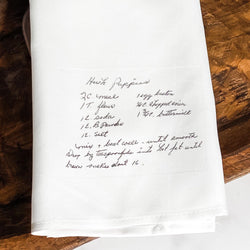 Hush Puppies
2 C. meal 1 egg beaten
1 T. flour chopped onion
1 t. soda 1 buttermilk
1 t. B. Powder
1 t. Salt
mix & beat well - until smooth
Drop by teaspoonfuls into hot fat until
brown